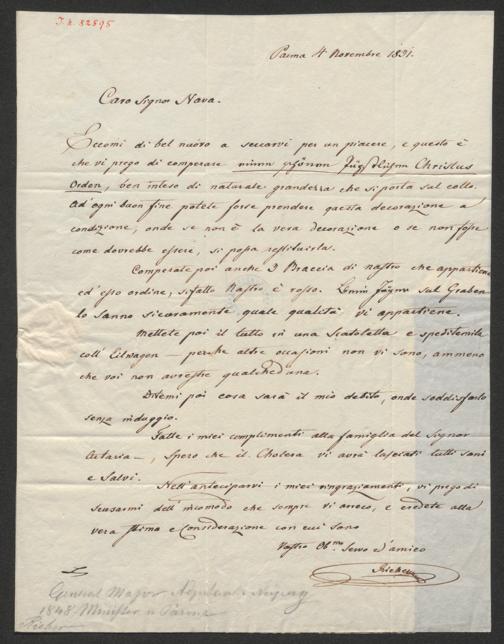 I. N. 82595
Parma 4 Novembre 1831.
Caro Signor Nava.
Eccomi di bel nuovo a seccarvi per un piacere, e questo è
che vi prego di comperare einen schönen Christus
Orden, ben inteso di naturale grandezza che si porta sul collo.
Ad ogni buon fine potete forse prendere questa decorazione a
condizione, onde se non è la vera decorazione o se non fosse
come dovrebbe essere, si possa restituirla.
Comperate poi anche 2 Braccia di nastro che appartiene
ad esso ordine, sifatto Nastro è rosso. sul Graben
lo sanno sicuramente quale qualità vi appartiene.
Mettete poi il tutto in una Scatoletta e speditemila
coll' Eilwagen — perche altre occasioni non vi sono, ammeno
che voi non avreste qualchedune.
Ditemi poi cosa sarà il mio debito, onde soddisfarlo
senza indugio.
Fatte i miei complimenti alla famiglia del Signor
Artaria —, spero che il Cholera vi avrà lasciati tutti sani
e Salvi.
Nell' anteciparvi i miei ringraziamenti, vi prego di
scusarmi dell' incomodo che sempre vi areco, e credete alla
vera stima e Considerazione con cui sono
Vostro Ob.mo Servo ed amico
Richer
General Major Neipperg
1848 Minister in Parma
Richer